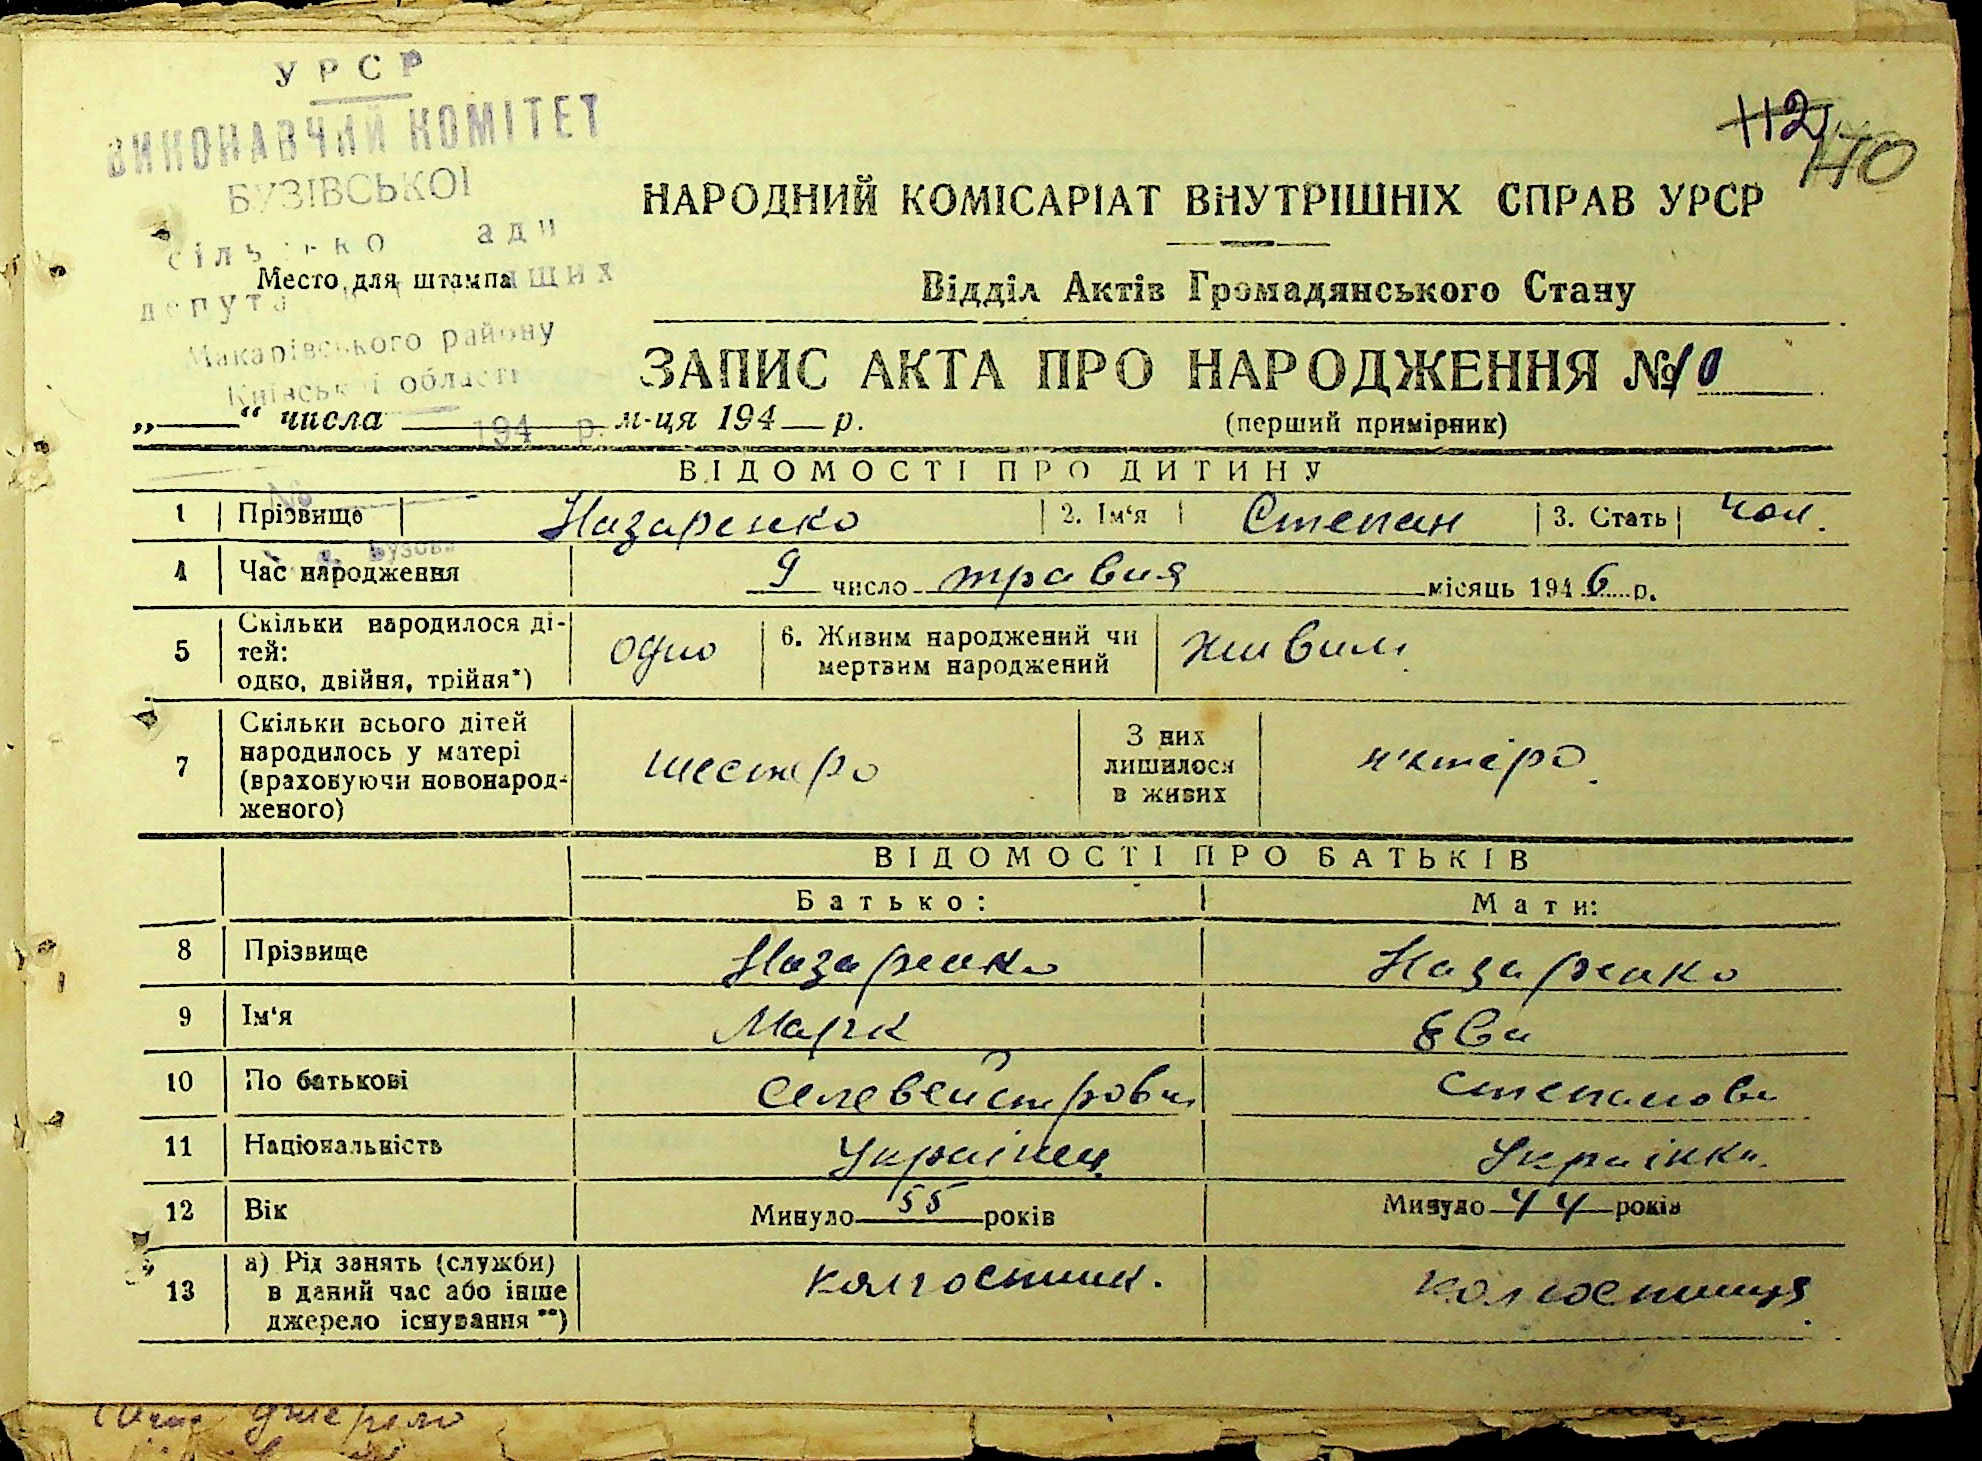 УРСР
ВИКОНАВЧИЙ КОМІТЕТ
БУЗІВСЬКОЇ
Макарівського району
Київської області
194 р.
№
112
НАРОДНИЙ КОМІСАРІАТ ВНУТРІШНІХ СПРАВ УРСР
Место для штампа
Відділ Актів Громадянського Стану
ЗАПИС АКТА ПРО НАРОДЖЕННЯ № 10
„ “ числа м-ця 194 р.
(перший примірник)
ВІДОМОСТІ ПРО ДИТИНУ
1 Прізвище Назаренко 2. Ім‘я Степан 3. Стать чол.
4 Час народження 9 число травня місяць 1946 р.
5 Скільки народилося ді-
тей:
одно, двійня, трійня*) одно
6. Живим народжений чи
мертвим народжений живим
7 Скільки всього дітей
народилось у матері
(враховуючи новонарод-
женого) шестеро
З них
лишилося
в живих п'ятеро
ВІДОМОСТІ ПРО БАТЬКІВ
Батько: Мати:
8 Прізвище Назаренко Назаренко
9 Ім‘я Марк Єва
10 По батькові Селевейстрович Степановна
11 Національність Українец Українка.
12 Вік Минуло 55 років Минуло 44 років
13 а) Рід занять (служби)
в даний час або інше
джерело існування**) колгоспник. колгоспниця
джерело